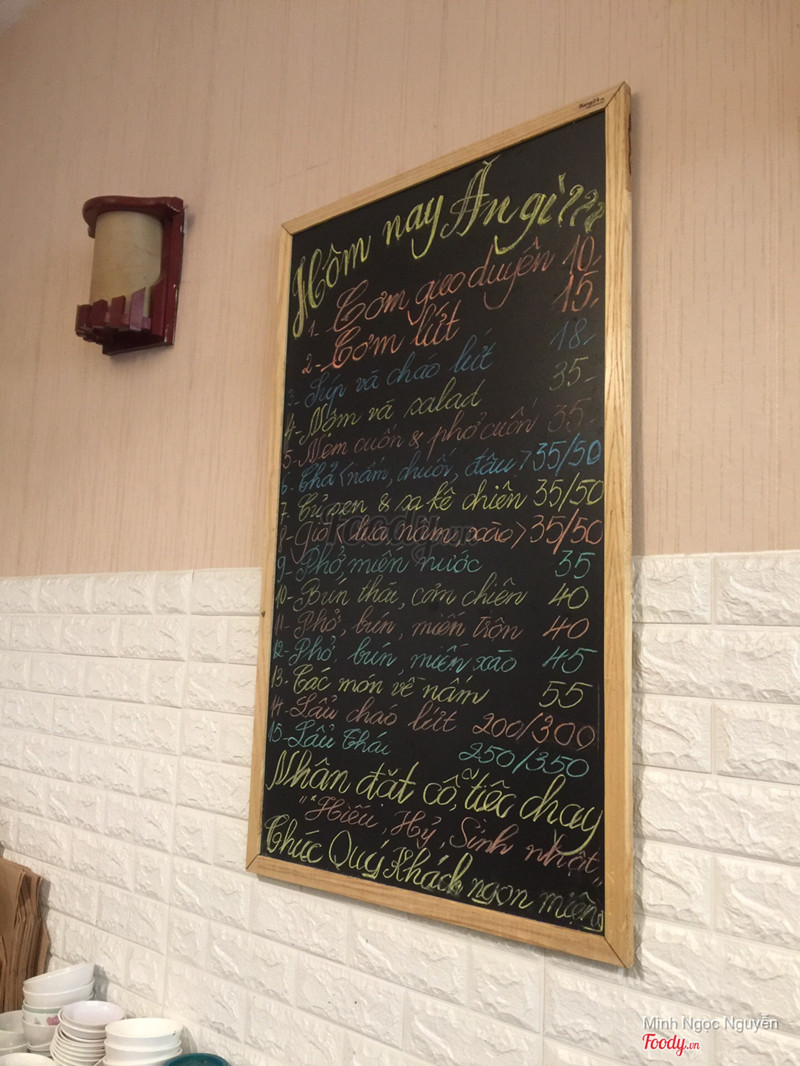 Hôm nay Ăn gì???
1- Cơm gieo duyên 10,
2- Cơm lứt 15,
3- Súp và cháo lứt 18,
4- Nộm và salad 35-
5- Nem cuốn & phở cuốn 35-
6- Chả <nấm, chuối, đậu> 35/50
7- Củ sen & sa kê chiên 35/50
8- Giò <lụa, nấm, xào> 35/50
9- Phở, miến nước 35
10- Bún thái, cơm chiên 40
11- Phở, bún, miến trộn 40
12- Phở, bún, miến xào 45
13- Các món về nấm 55
14- Lẩu cháo lứt 200/300
15- Lẩu Thái 250/350
Nhận đặt cỗ, tiệc chay
"Hiếu, Hỷ, Sinh nhật,,
Chúc Quý Khách ngon miệng
Minh Ngọc Nguyễn
Foody.vn